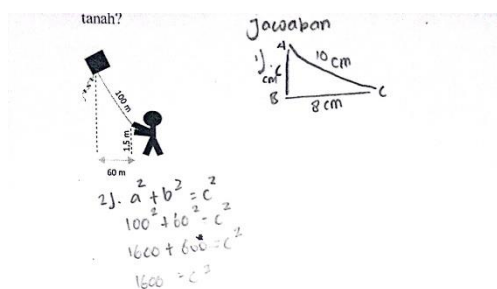 tanah?
100 m
1,5 m
60 m
Jawaban
1).
A
10 cm
cm
B
8 cm
C
2). a² + b² = c²
100² + 60² = c²
1600 + 600 = c²
1600 = c²